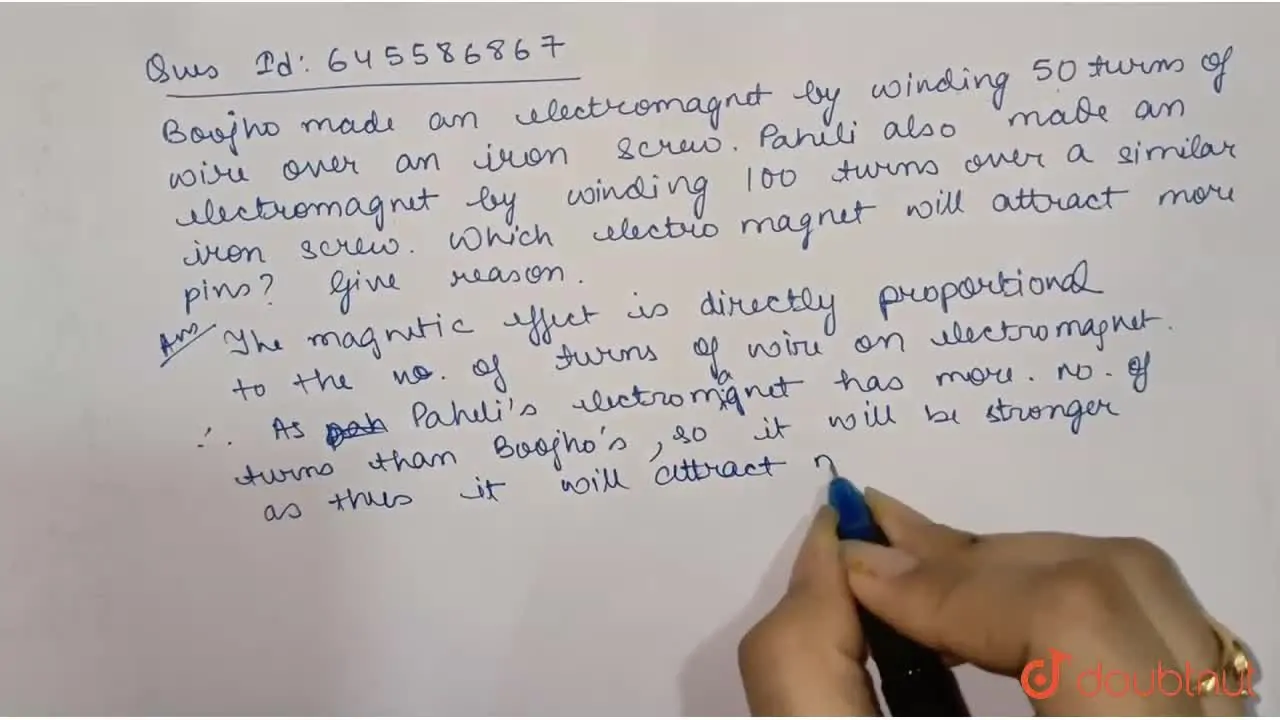 Ques Id: 645586867
Boojho made an electromagnet by winding 50 turns of
wire over an iron screw. Paheli also made an
electromagnet by winding 100 turns over a similar
iron screw. Which electro magnet will attract more
pins? Give reason.
Ans The magnetic effect is directly proportional
to the no. of turns of wire on electromagnet.
∴ As Paheli's electromagnet has more. no. of
turns than Boojho's, so it will be stronger
as thus it will attract
doubtnut